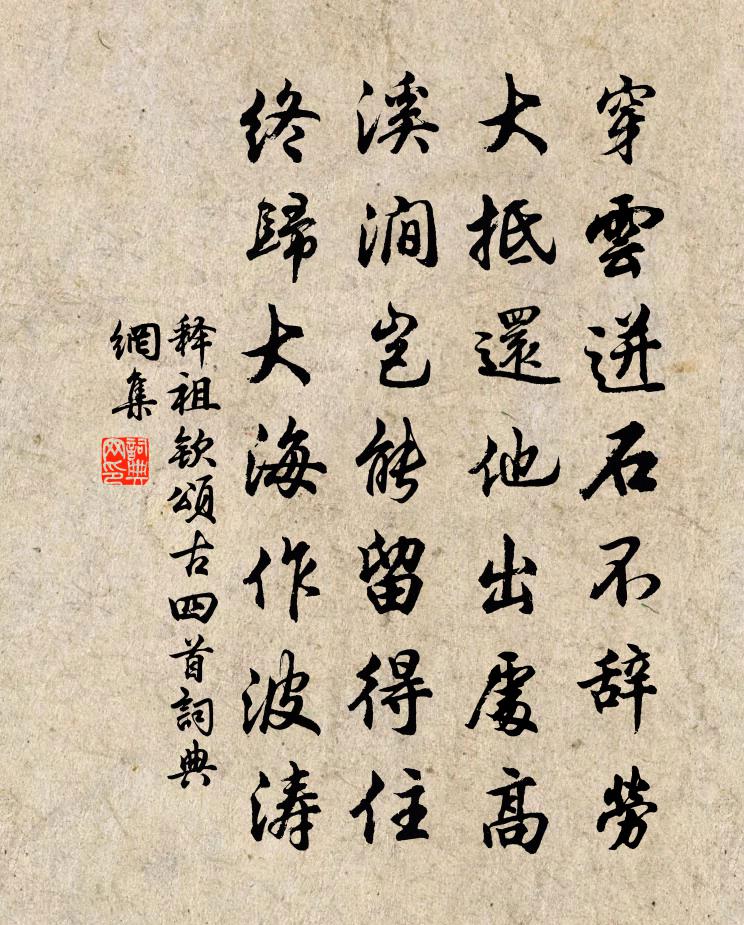 穿雲迸石不辞勞
大抵還他出處高
溪澗岂能留得住
终歸大海作波涛
释祖欽頌古四首詞典
網集
詞典
网印